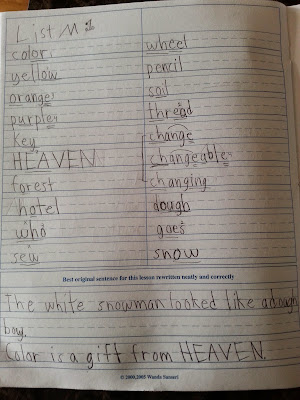 List M:1
color
yellow
orange
purple
key
HEAVEN
forest
hotel
who
sew
wheel
pencil
soil
thread
change
changeable
changing
dough
goes
snow
Best original sentence for this lesson rewritten neatly and correctly
The white snowman looked like a dough
boy.
Color is a gift from HEAVEN.
© 2000, 2005 Wanda Sanseri